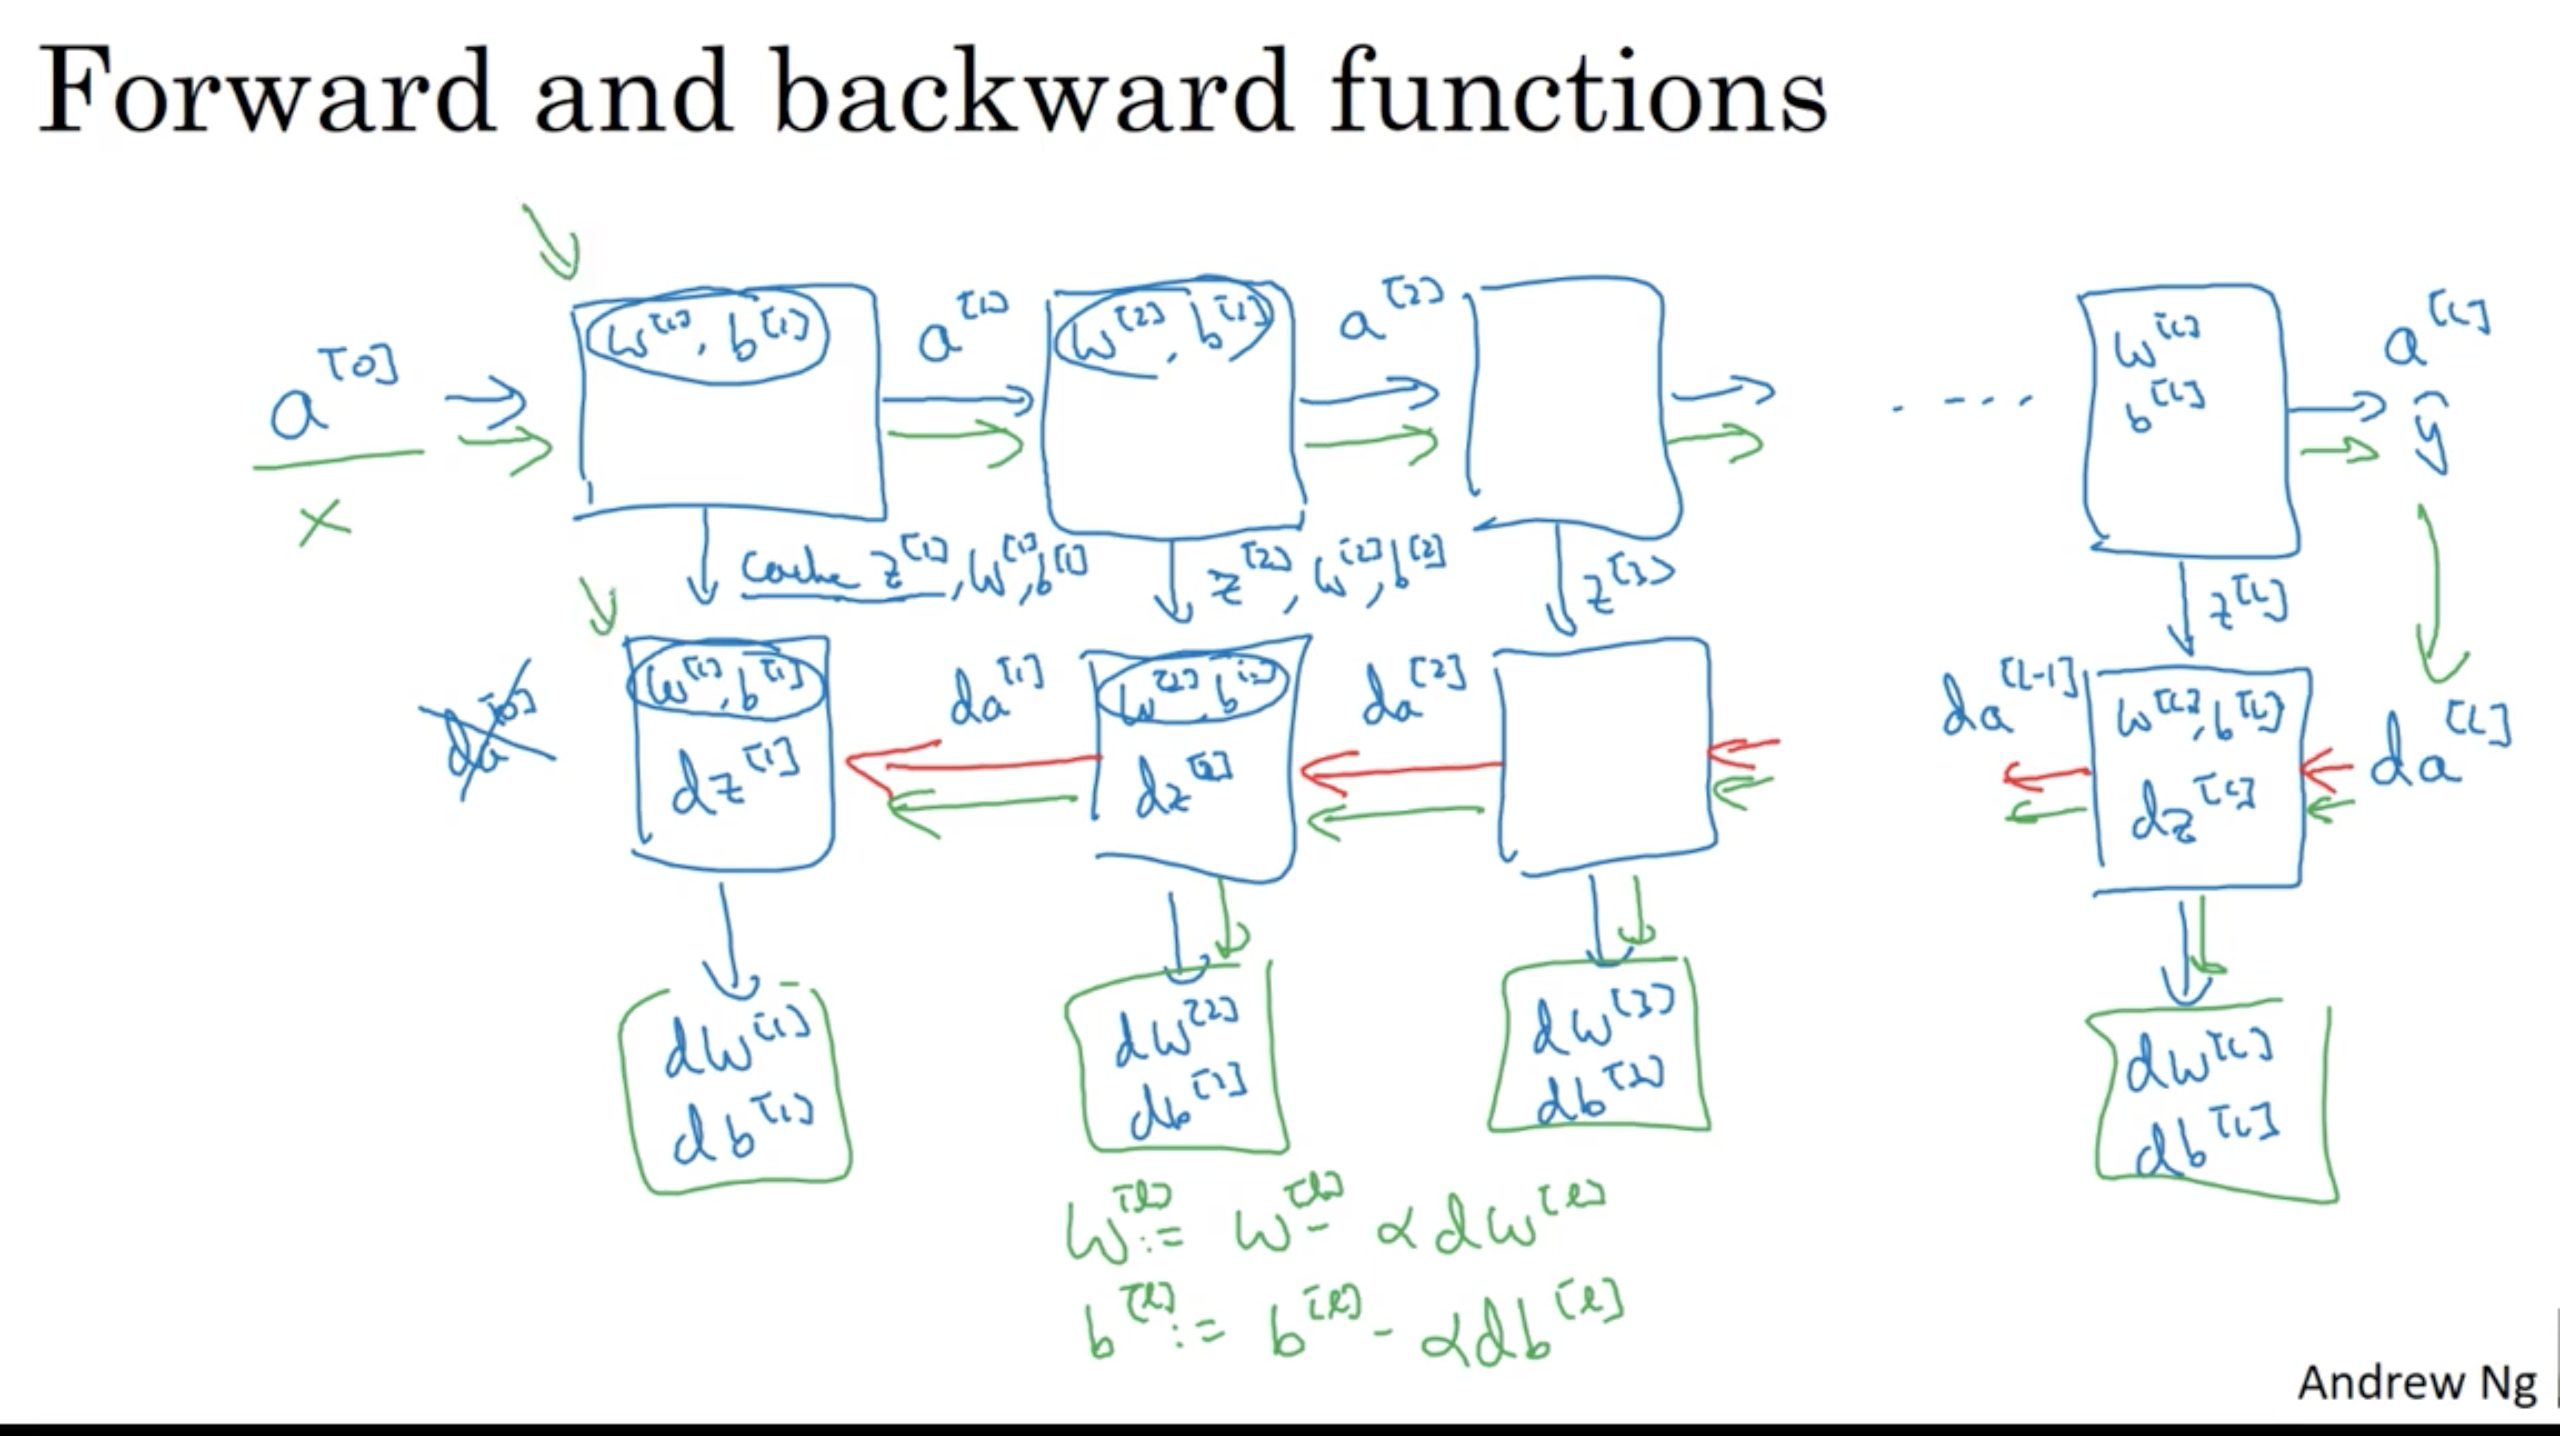 Forward and backward functions
a^[0] w^[1], b^[1] a^[1] w^[2], b^[2] a^[2] .... w^[L] a^[L]
b^[L] ŷ
x
cache z^[1], w^[1], b^[1] z^[2], w^[2], b^[2] z^[3] z^[L]
da^[0] w^[1], b^[1] da^[1] w^[2], b^[2] da^[2] da^[L-1] w^[L], b^[L] da^[L]
dz^[1] dz^[2] dz^[L]
dw^[1] dw^[2] dw^[3] dw^[L]
db^[1] db^[2] db^[3] db^[L]
W^[l] := W^[l] - αdW^[l]
b^[l] := b^[l] - αdb^[l]
Andrew Ng